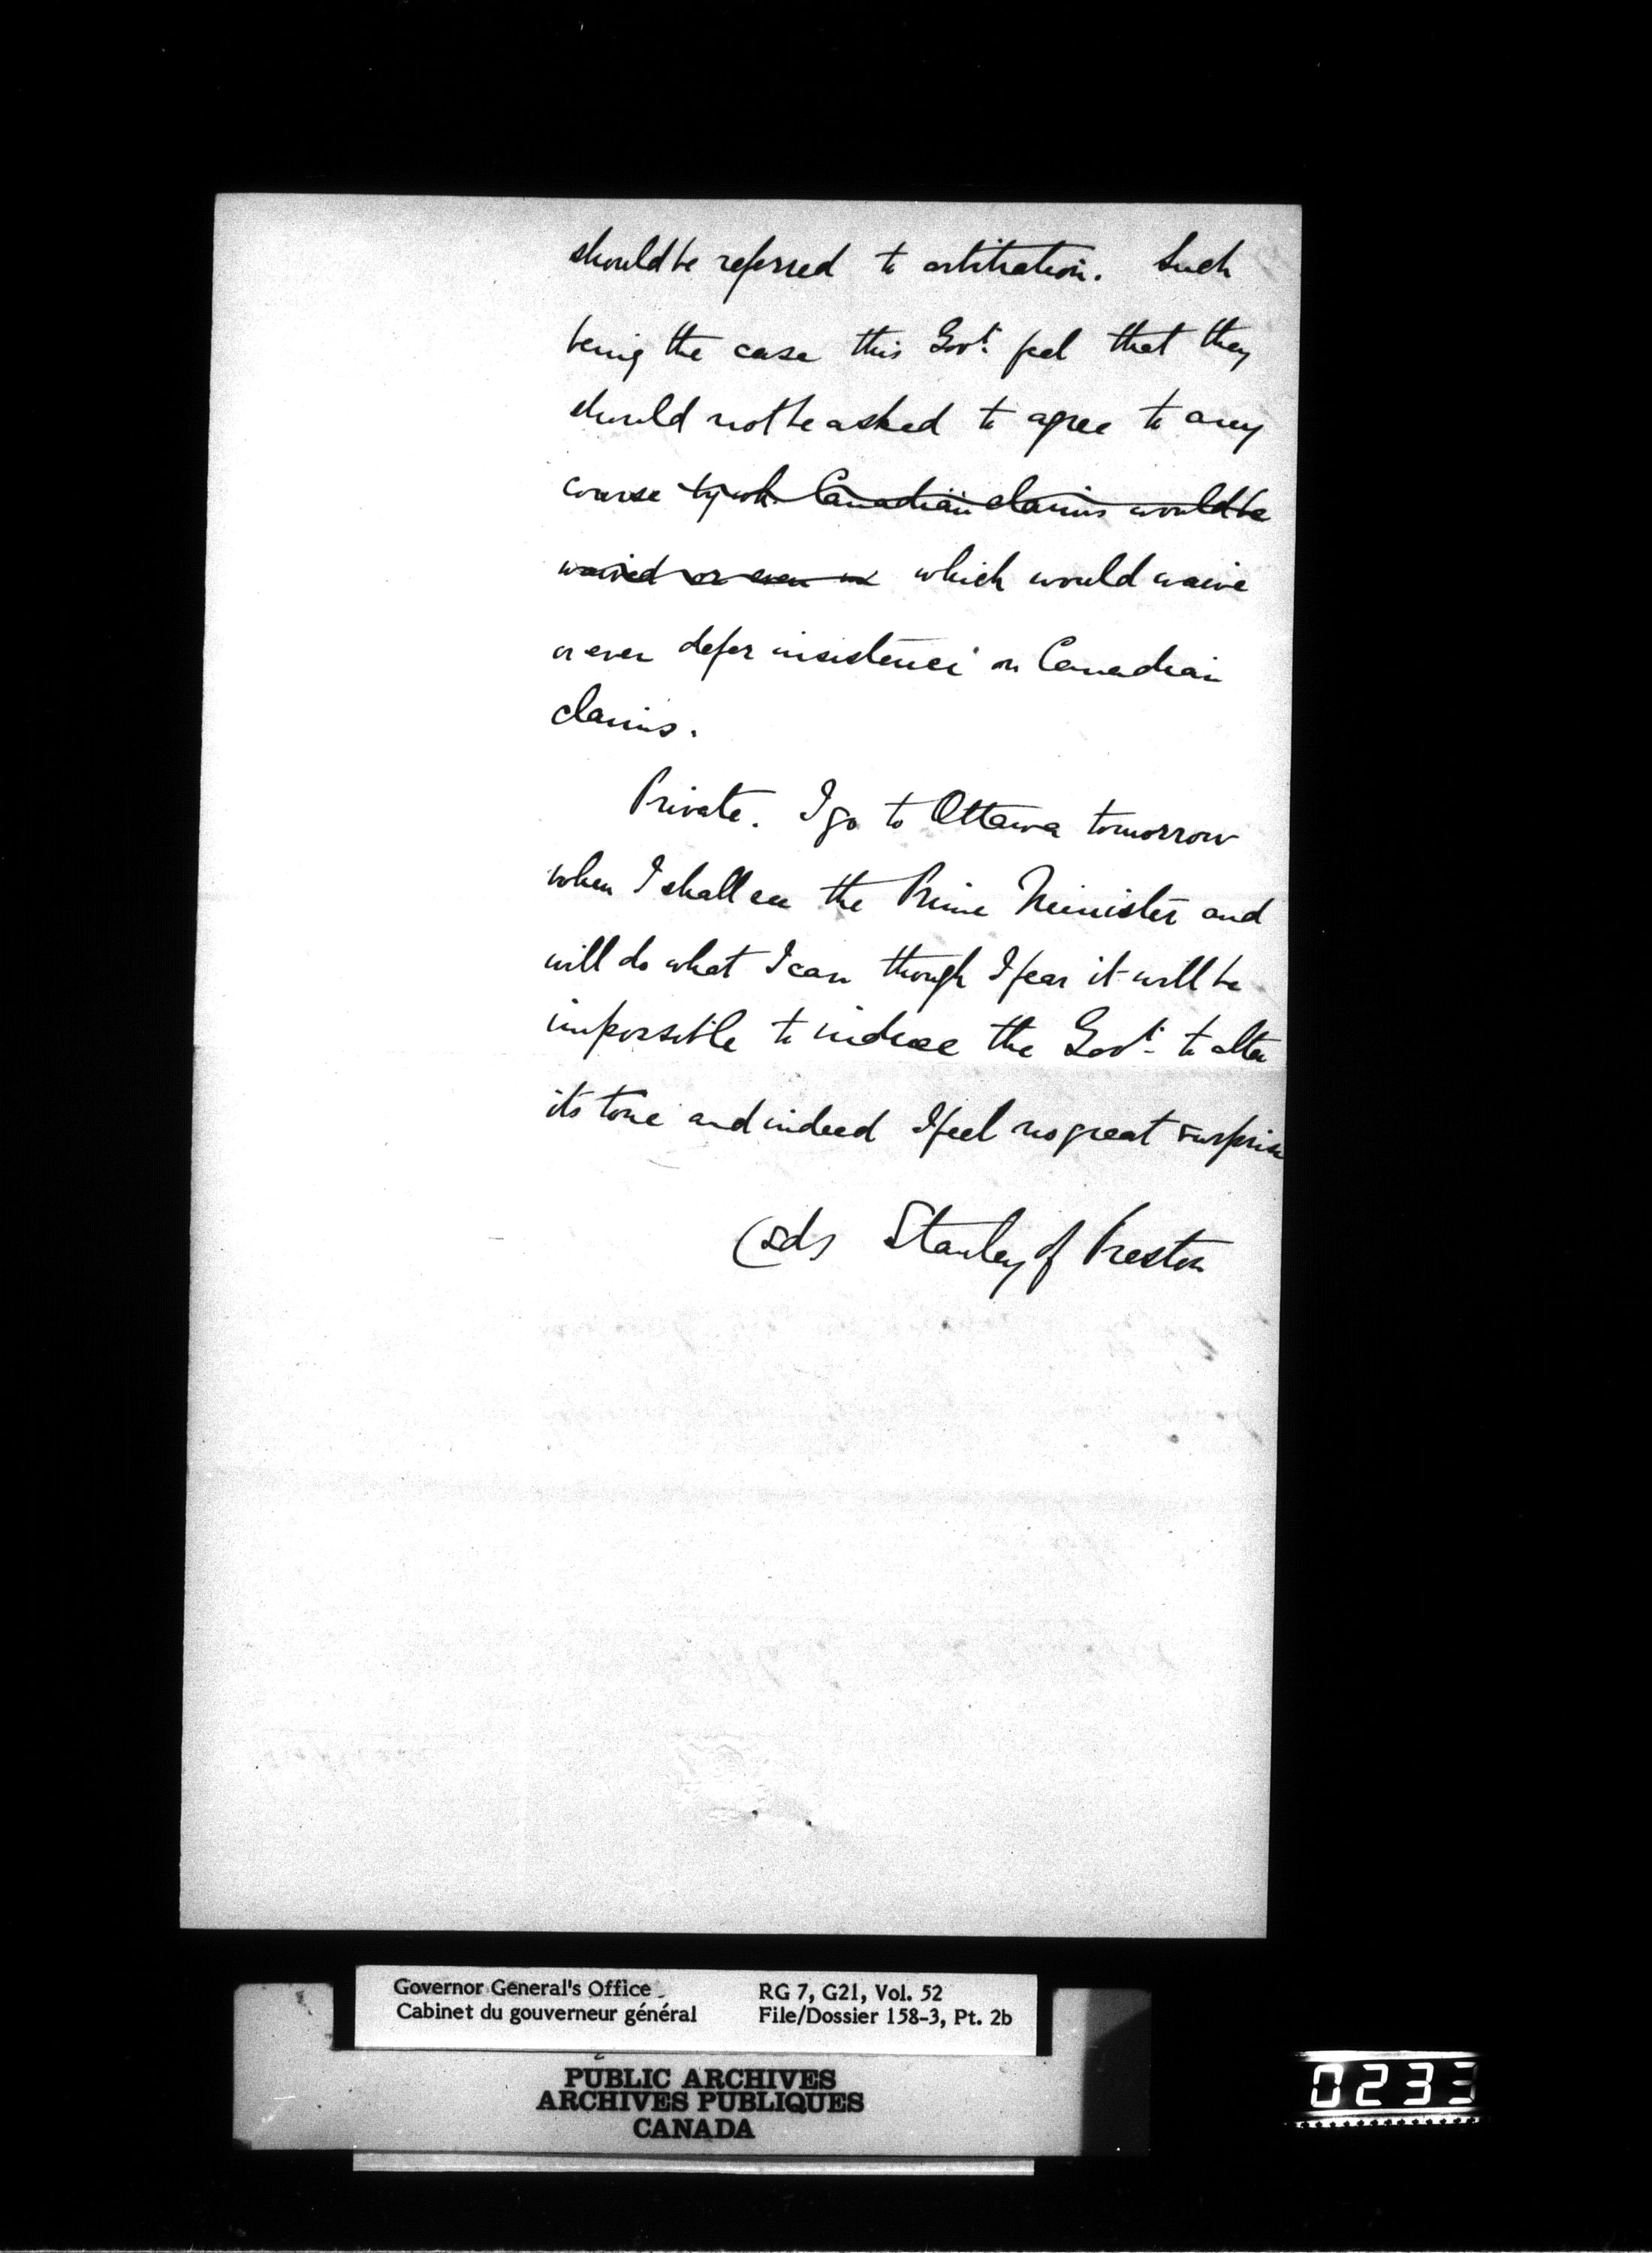 should be referred to arbitration. Such
being the case this Govt. feel that they
should not be asked to agree to any
course by wh. Canadian claims would be
waived or even in which would waive
or even defer insistence on Canadian
claims.
Private. I go to Ottawa tomorrow
when I shall see the Prime Minister and
will do what I can though I fear it will be
impossible to induce the Govt. to alter
its tone and indeed I feel no great surprise
(sd) Stanley of Preston
Governor General's Office RG 7, G21, Vol. 52
Cabinet du gouverneur général File/Dossier 158-3, Pt. 2b
PUBLIC ARCHIVES
ARCHIVES PUBLIQUES
CANADA
0233